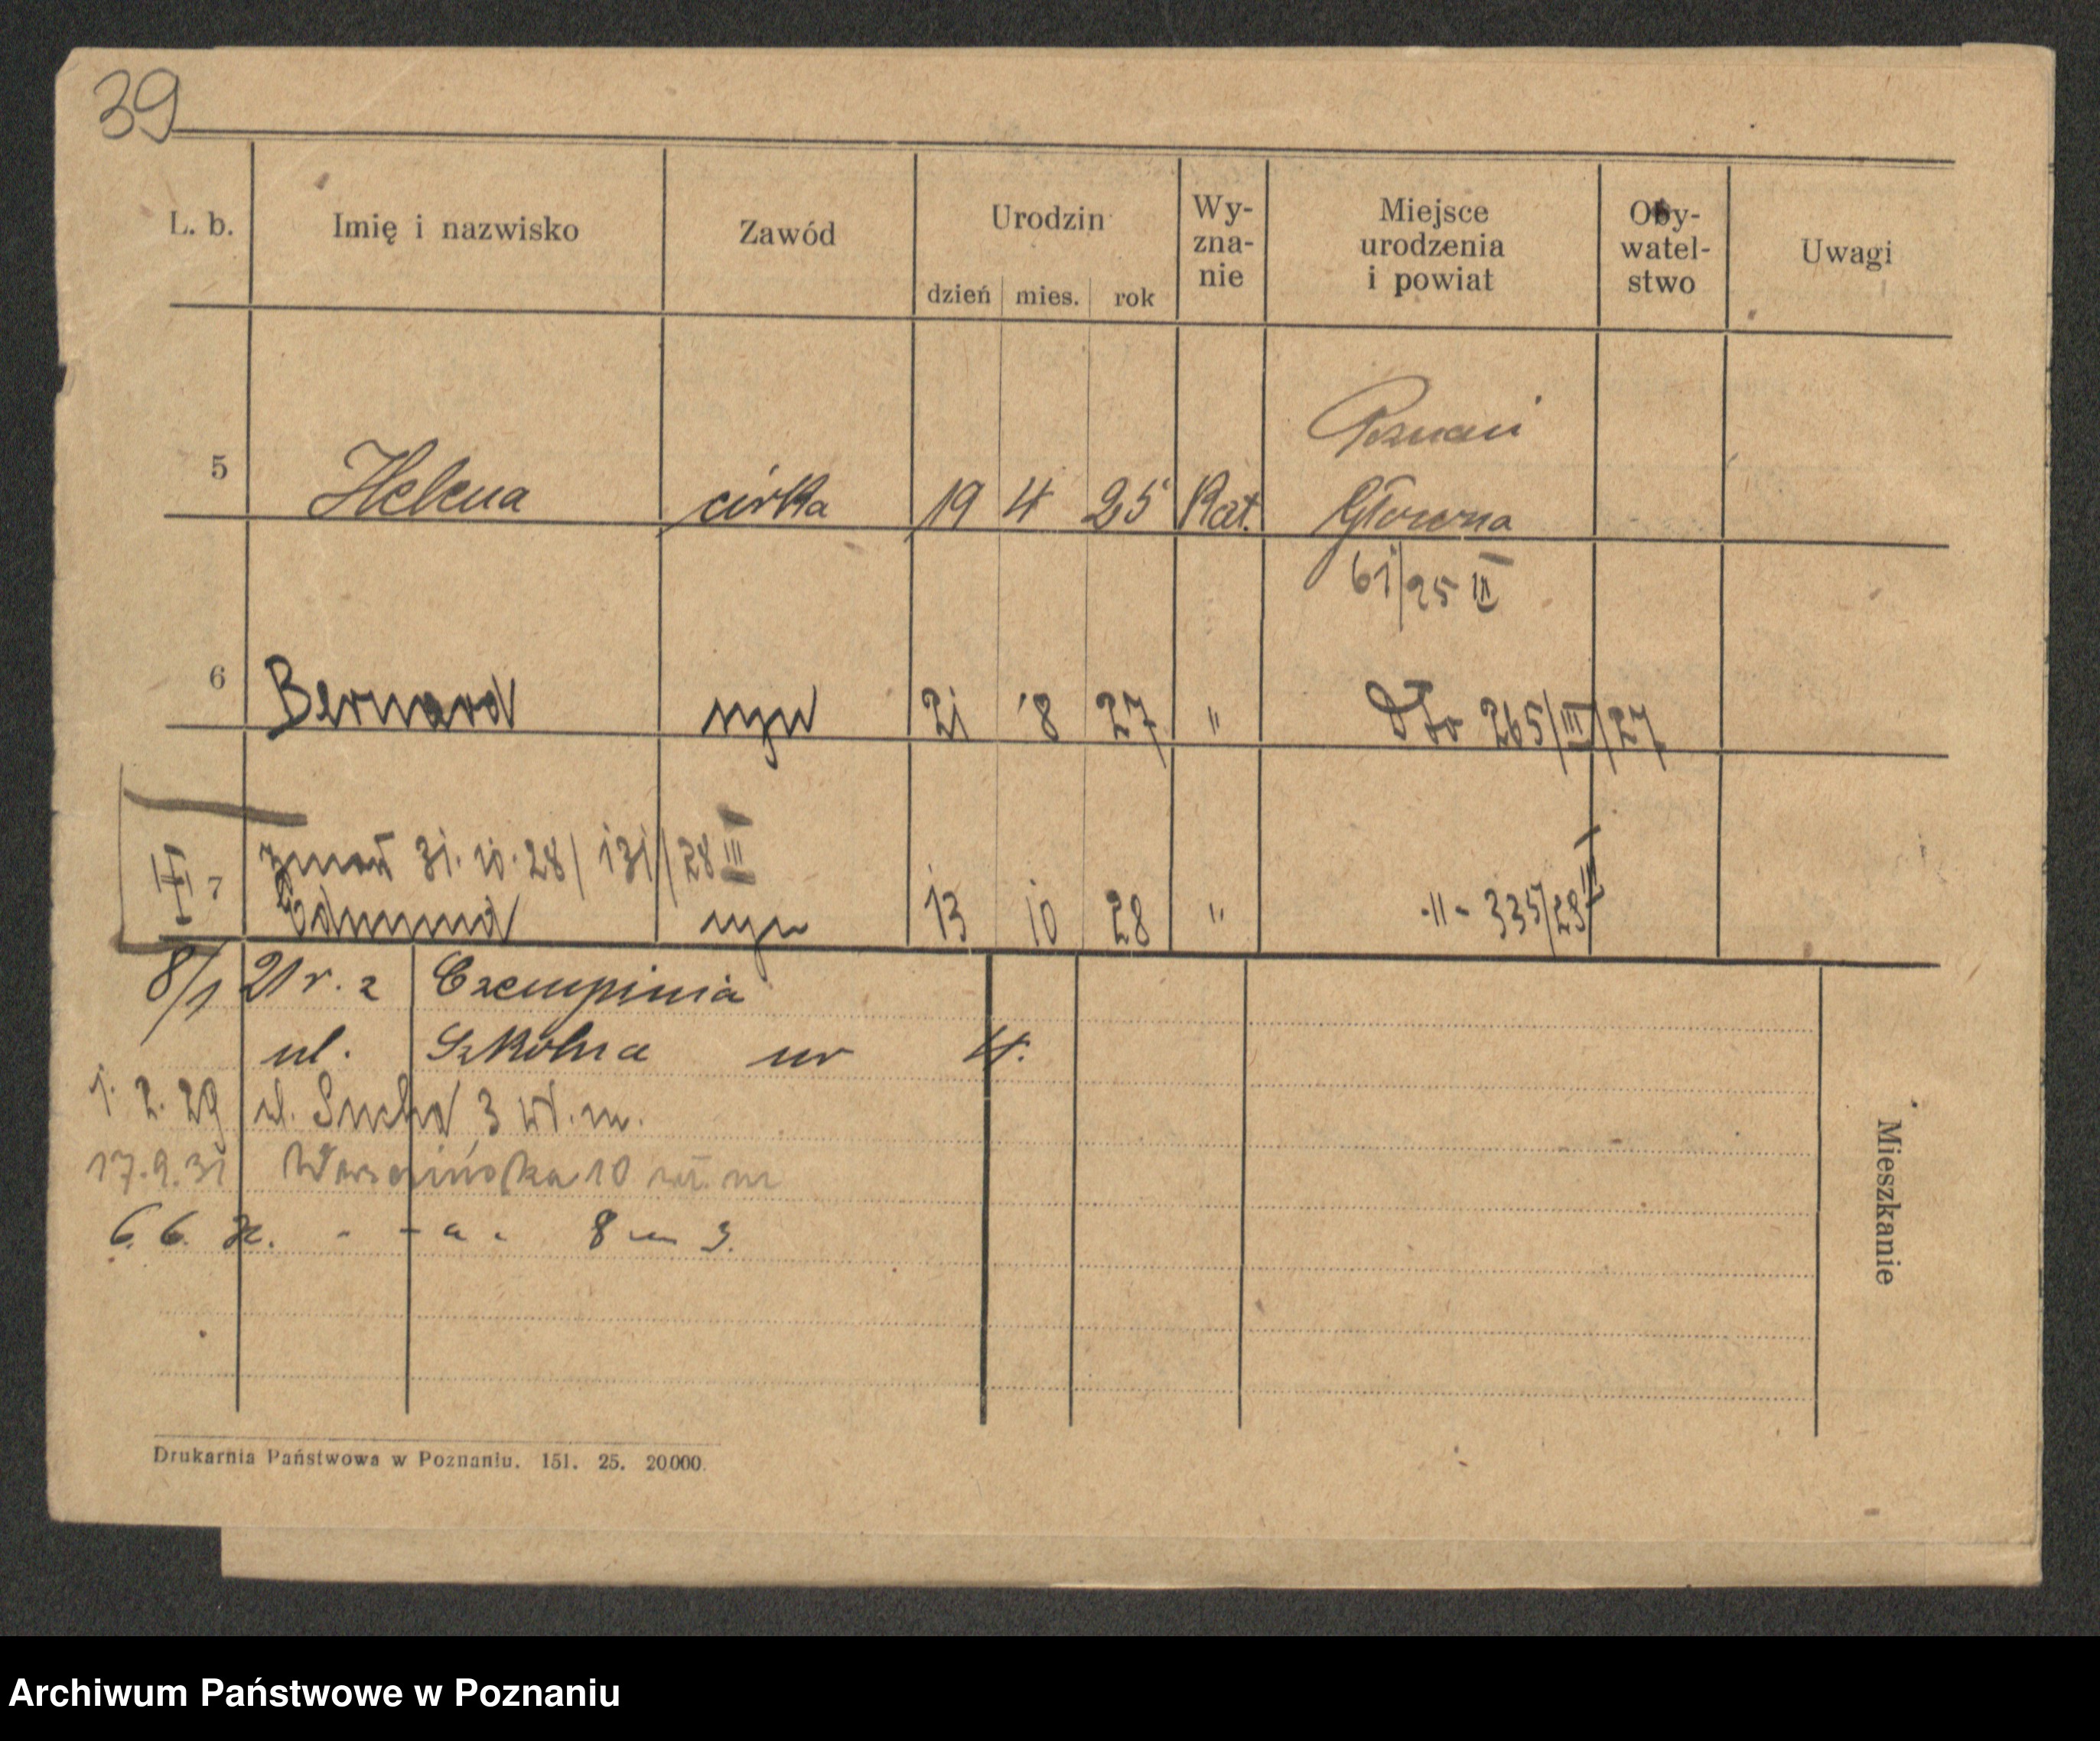 39
L. b. Imię i nazwisko Zawód Urodzin dzień mies. rok Wy-zna-nie Miejsce urodzenia i powiat Oby-watel-stwo Uwagi
Poznań
5 Helena córka 19 4 25 Kat. Główna
61/25 III
6 Bernard syn 21 8 27 " dto 265/III/27
zmarł 31.10.28 / 131/28 III
III 7 Edmund syn 13 10 28 " -"- 335/28 III
8/1 21 r. z Czempinia
ul. Szkolna nr 4.
1. 2. 29 ul. Sucha 3 wł. m.
17.9.31 10 wł. m
6. 6. - " - 8 m 3.
Mieszkanie
Drukarnia Państwowa w Poznaniu. 151. 25. 20000.
Archiwum Państwowe w Poznaniu